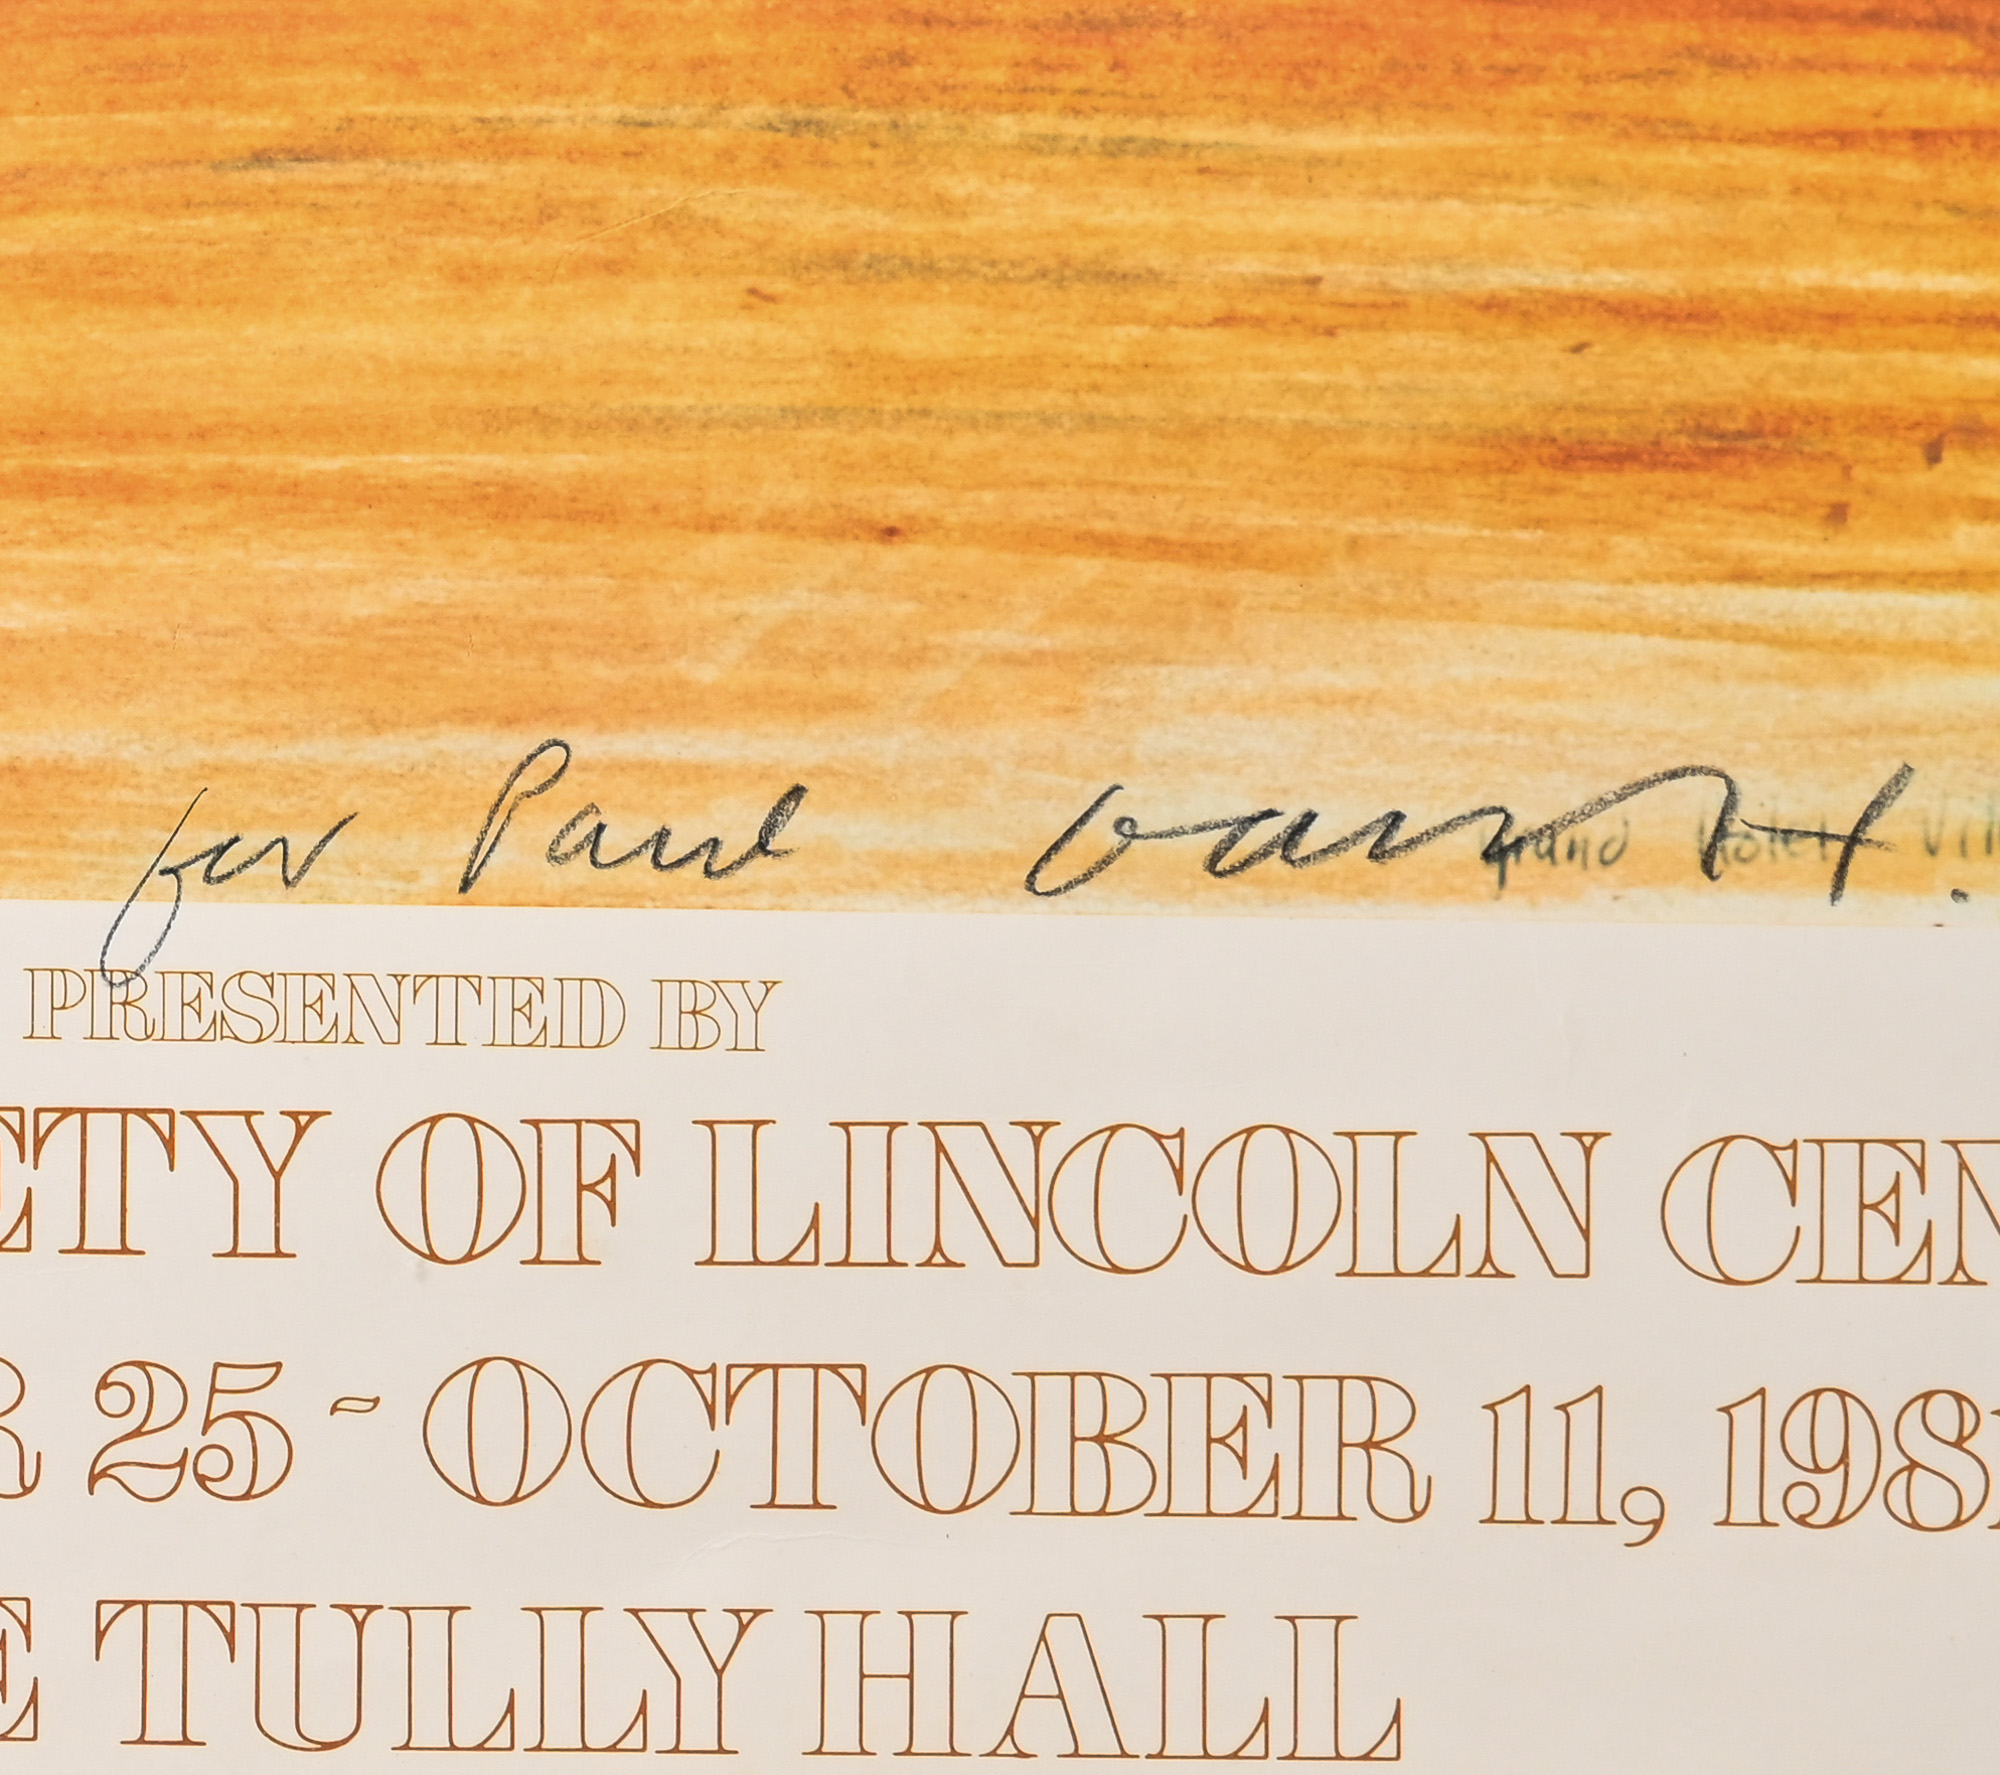 for Paul David H.
Grand Hotel Vil
PRESENTED BY
ETY OF LINCOLN CEN
R 25 - OCTOBER 11, 198
E TULLY HALL